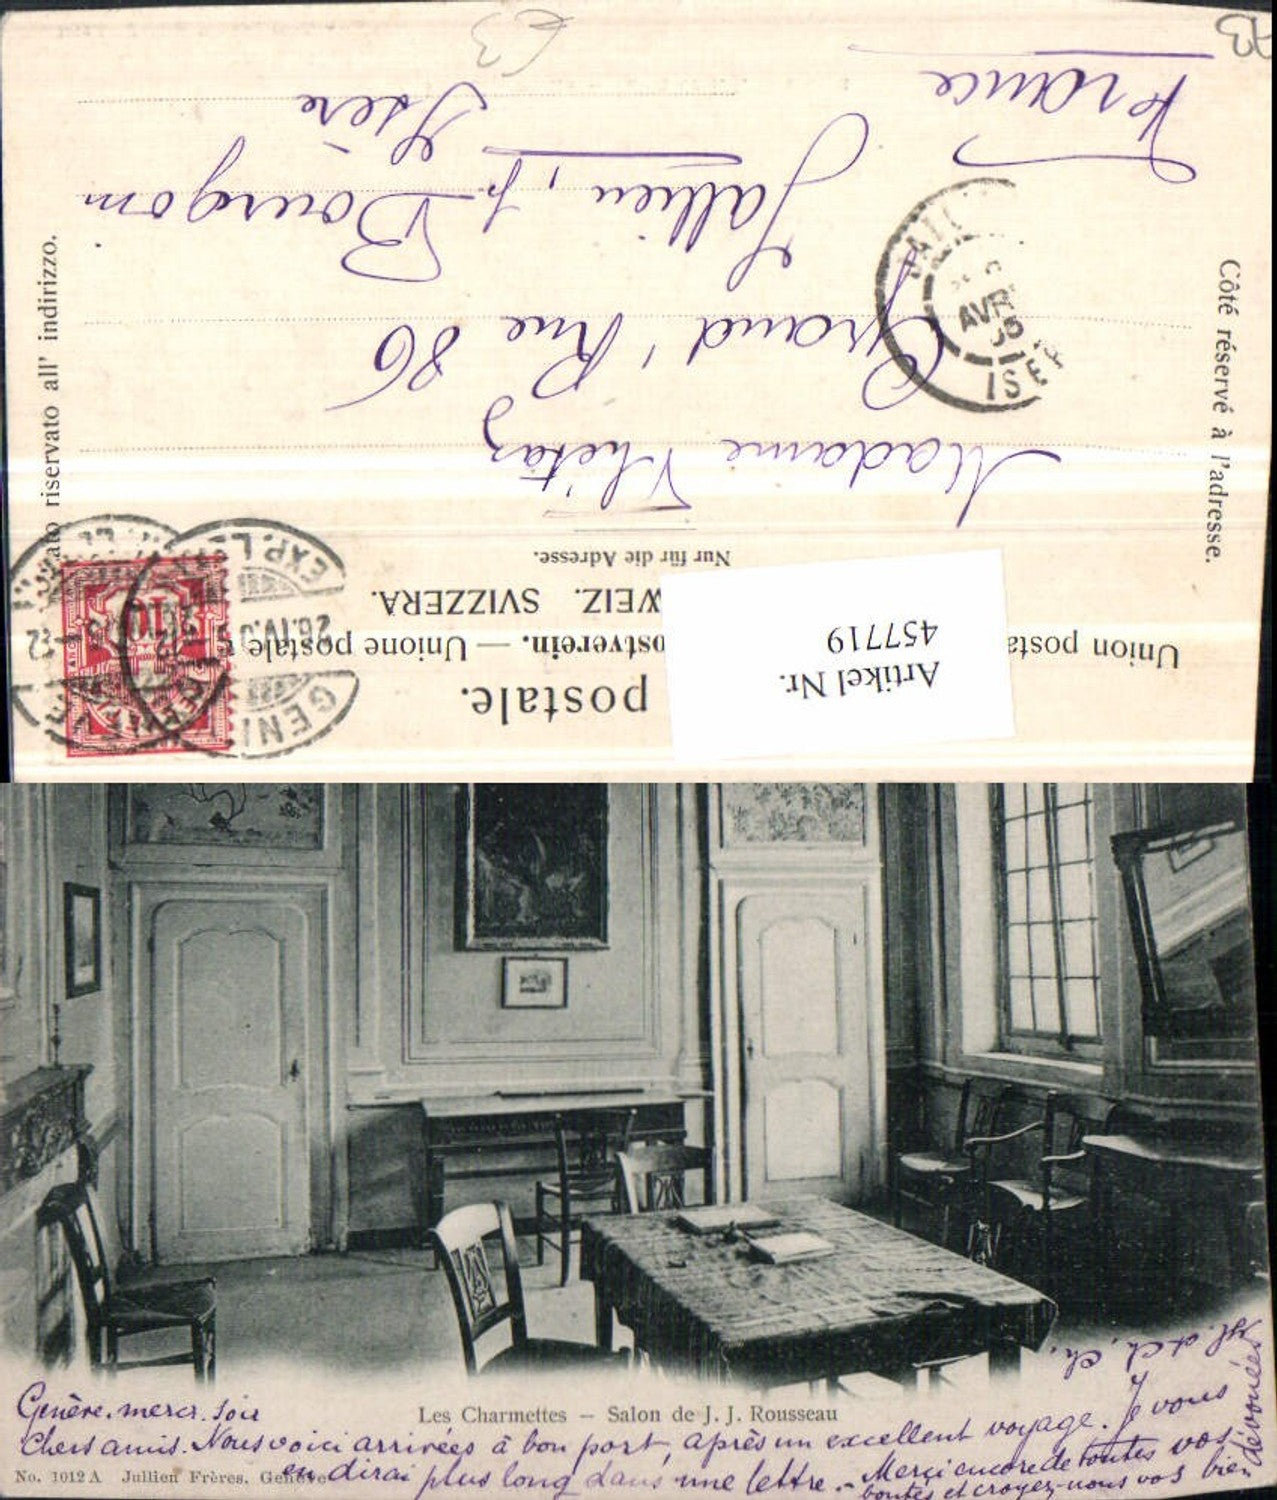 postale.
Union posta
ostverein. — Unione postale
WEIZ. SVIZZERA.
Nur für die Adresse.
Artikel Nr.
457719
Côté réservé à l'adresse.
riservato all' indirizzo.
Madame
Grand' Rue 86
Jallieu, p. Bourgoin
Isère
France
AVR
05
ISE
10
26.IV.0
EXP. LE
GEN
Les Charmettes – Salon de J. J. Rousseau
No. 1012 A Jullien Frères, Genève
Genève. mercr. soir
Chers amis. Nous voici arrivées à bon port, après un excellent voyage. Je vous
en dirai plus long dans une lettre. – Merci encore de toutes vos
bontés et croyez-nous vos bien
dévouées
et Ch. Ch.